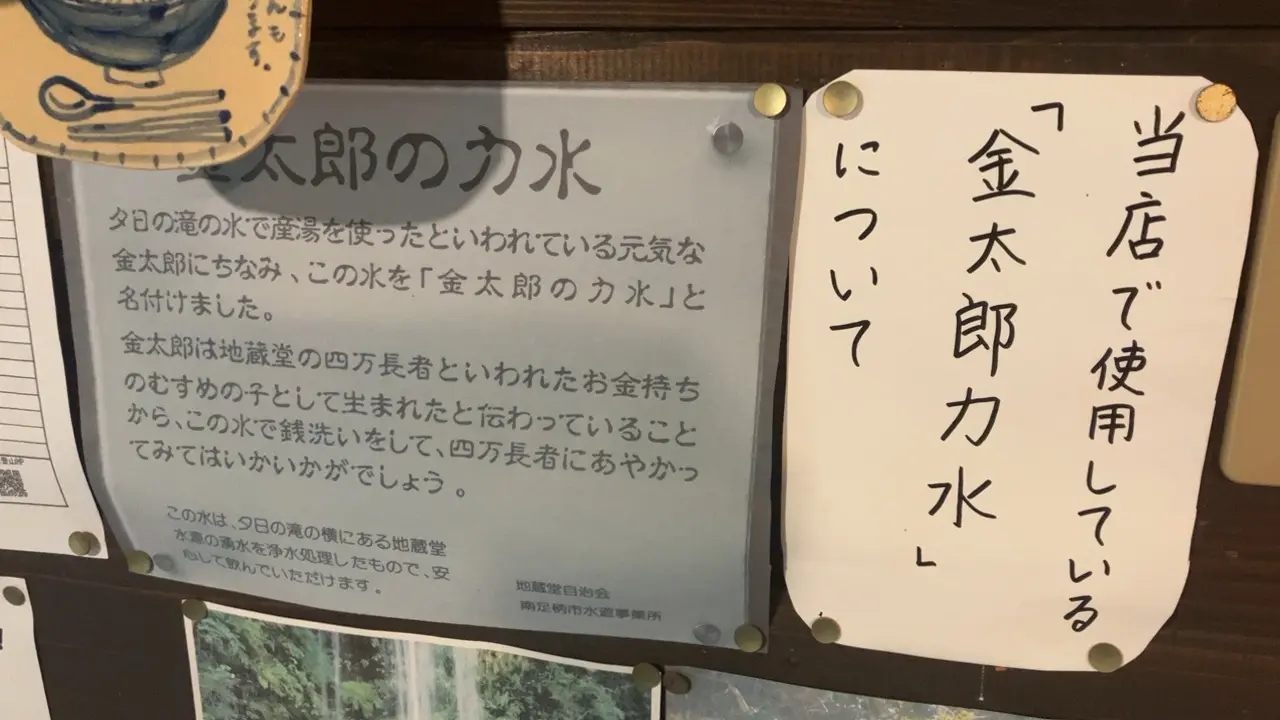 んも
ます。
金太郎の力水
夕日の滝の水で産湯を使ったといわれている元気な
金太郎にちなみ、この水を「金太郎の力水」と
名付けました。
金太郎は地蔵堂の四万長者といわれたお金持ち
のむすめの子として生まれたと伝わっていること
から、この水で銭洗いをして、四万長者にあやかっ
てみてはいかいかがでしょう。
この水は、夕日の滝の横にある地蔵堂
水源の湧水を浄水処理したもので、安
心して飲んでいただけます。
地蔵堂自治会
南足柄市水道事業所
当店で使用している
「金太郎力水」
について